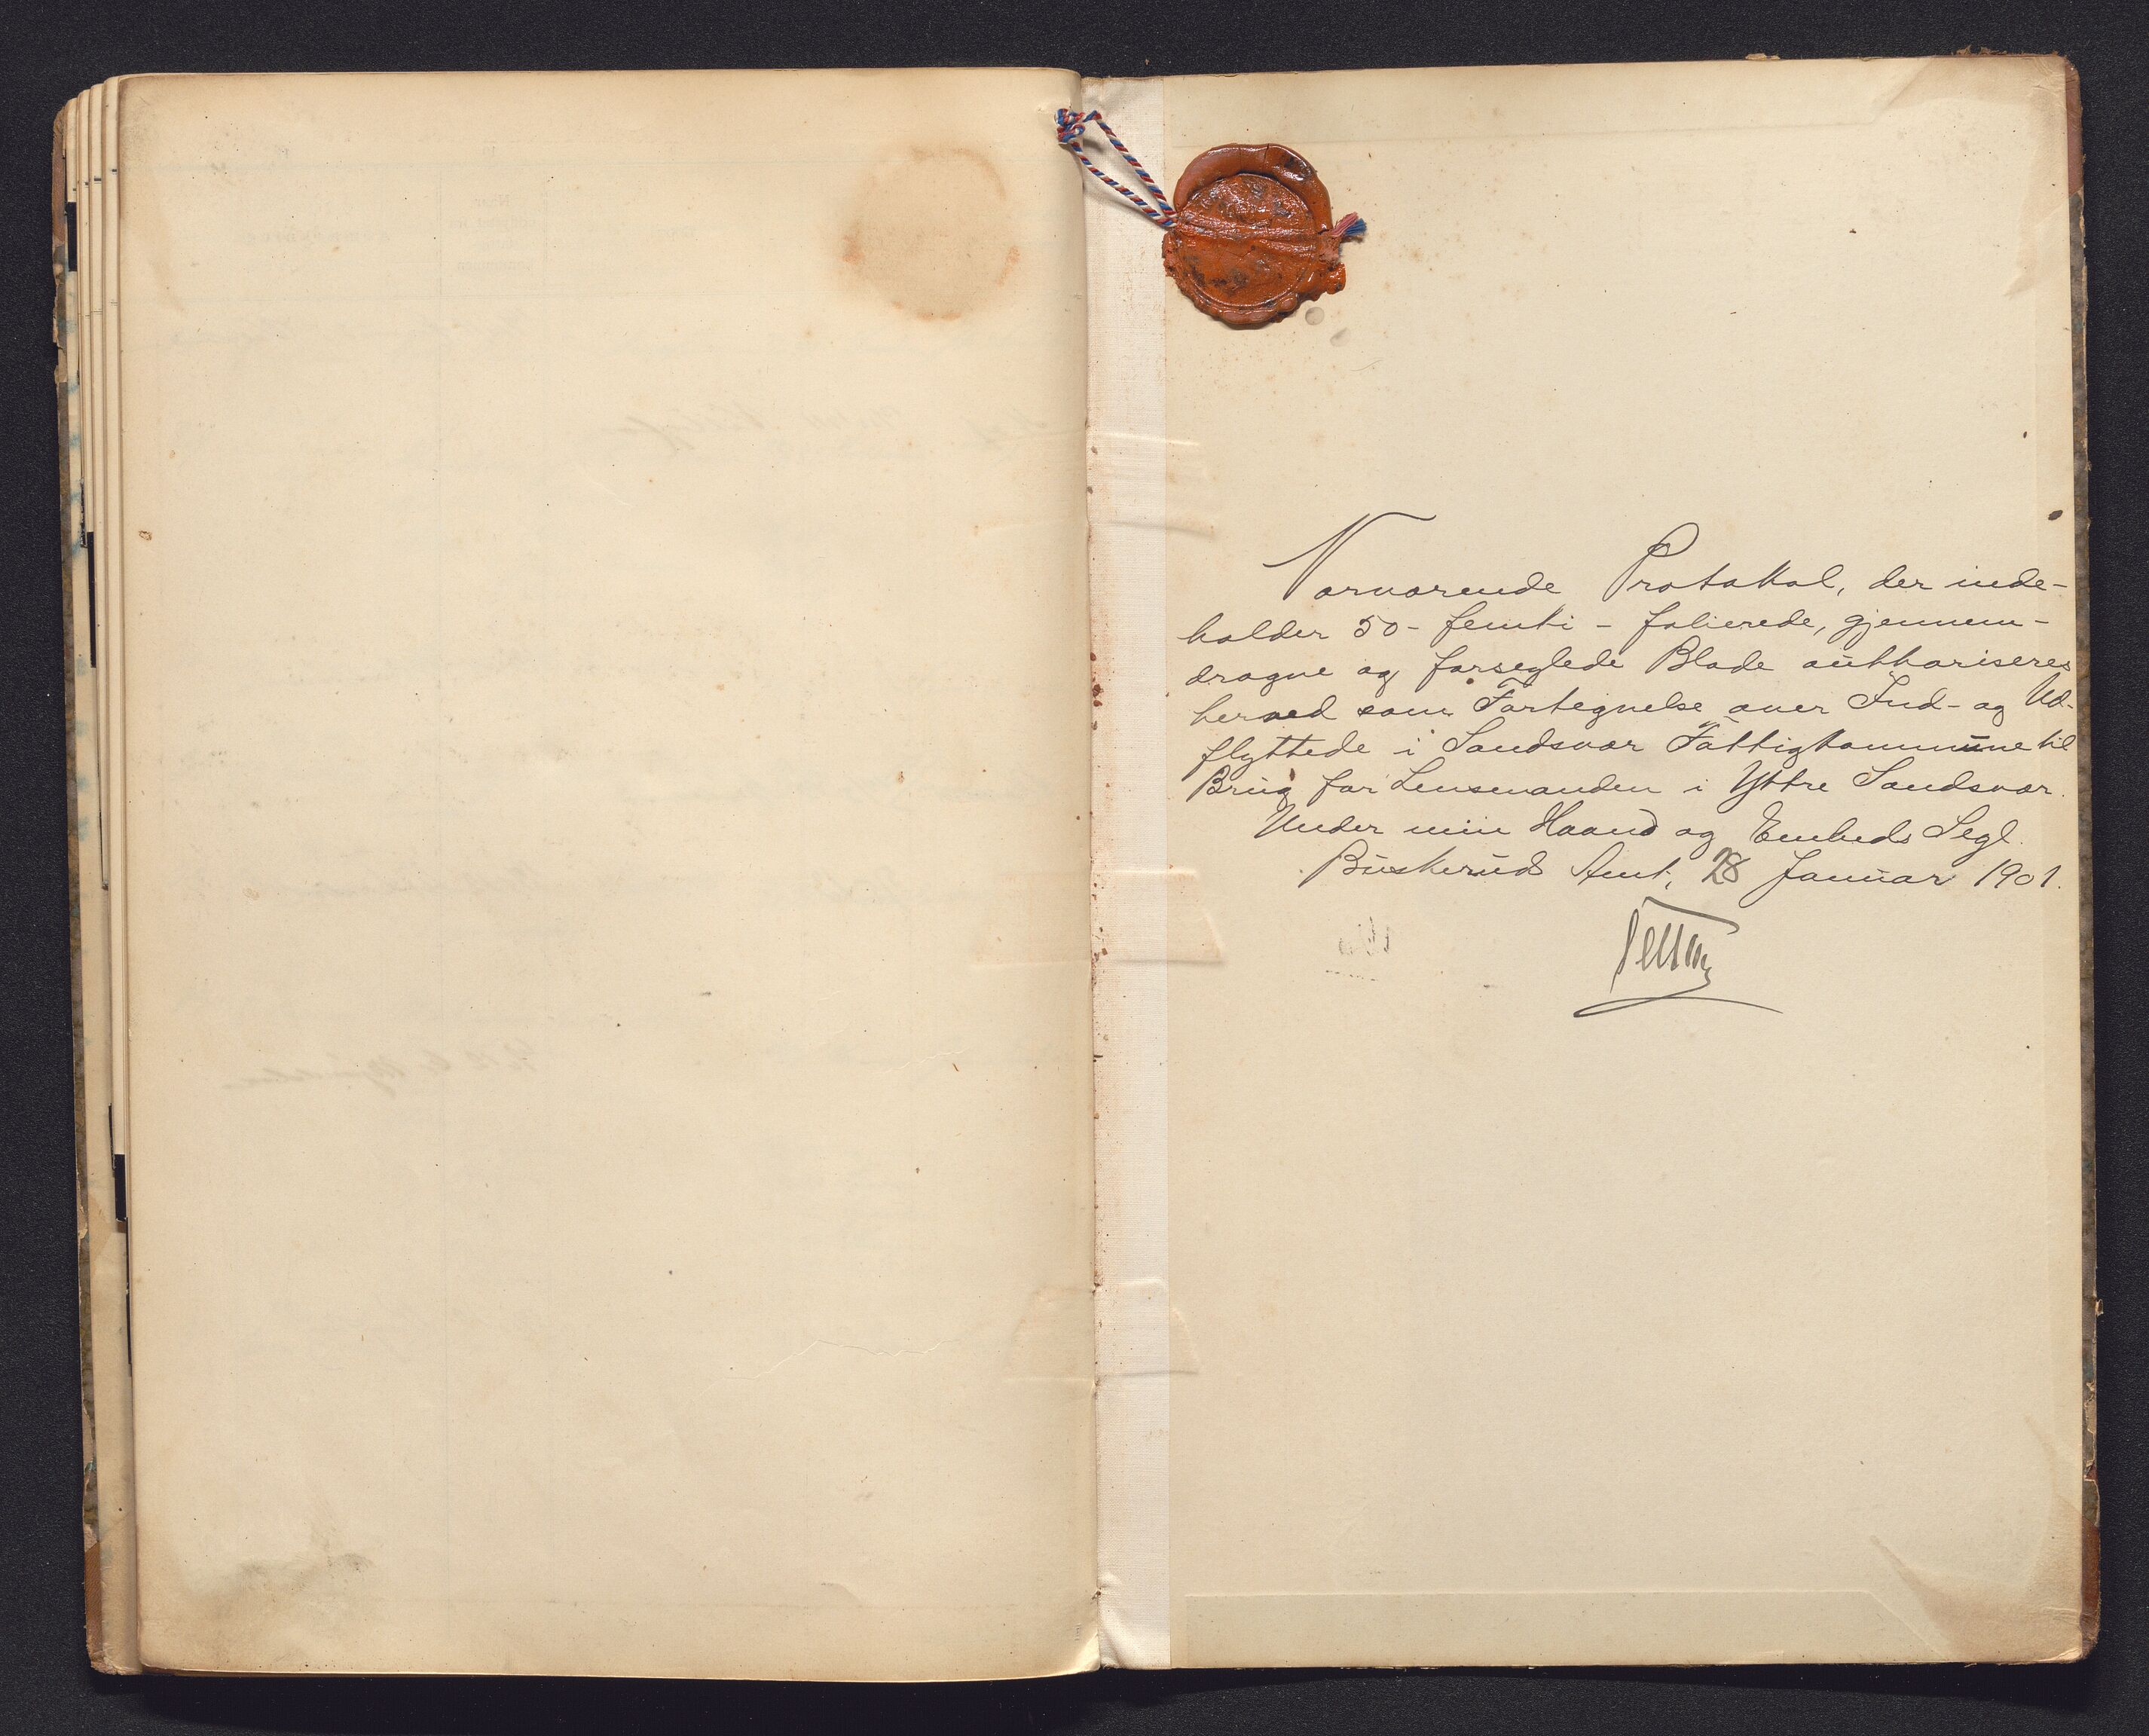 Nærværende Protokol, der inde-
holder 50 - femti - folierede, gjennem-
dragne og forseglede Blade authoriseres
herved som Fortegnelse over Ind- og Ud-
flyttede i Sandsvær Fattigkommune til
Brug for Lensmanden i Yttre Sandsvær.
Under min Haand og Embeds Segl.
Buskerud Amt, 28 Januar 1901.